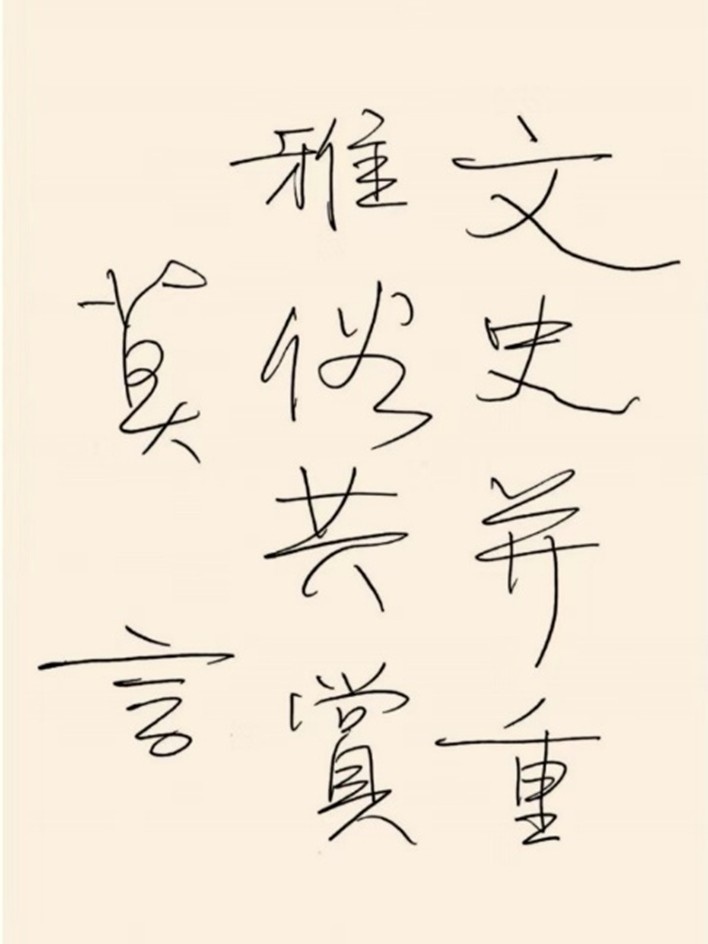 文史并重
雅俗共賞
莫言